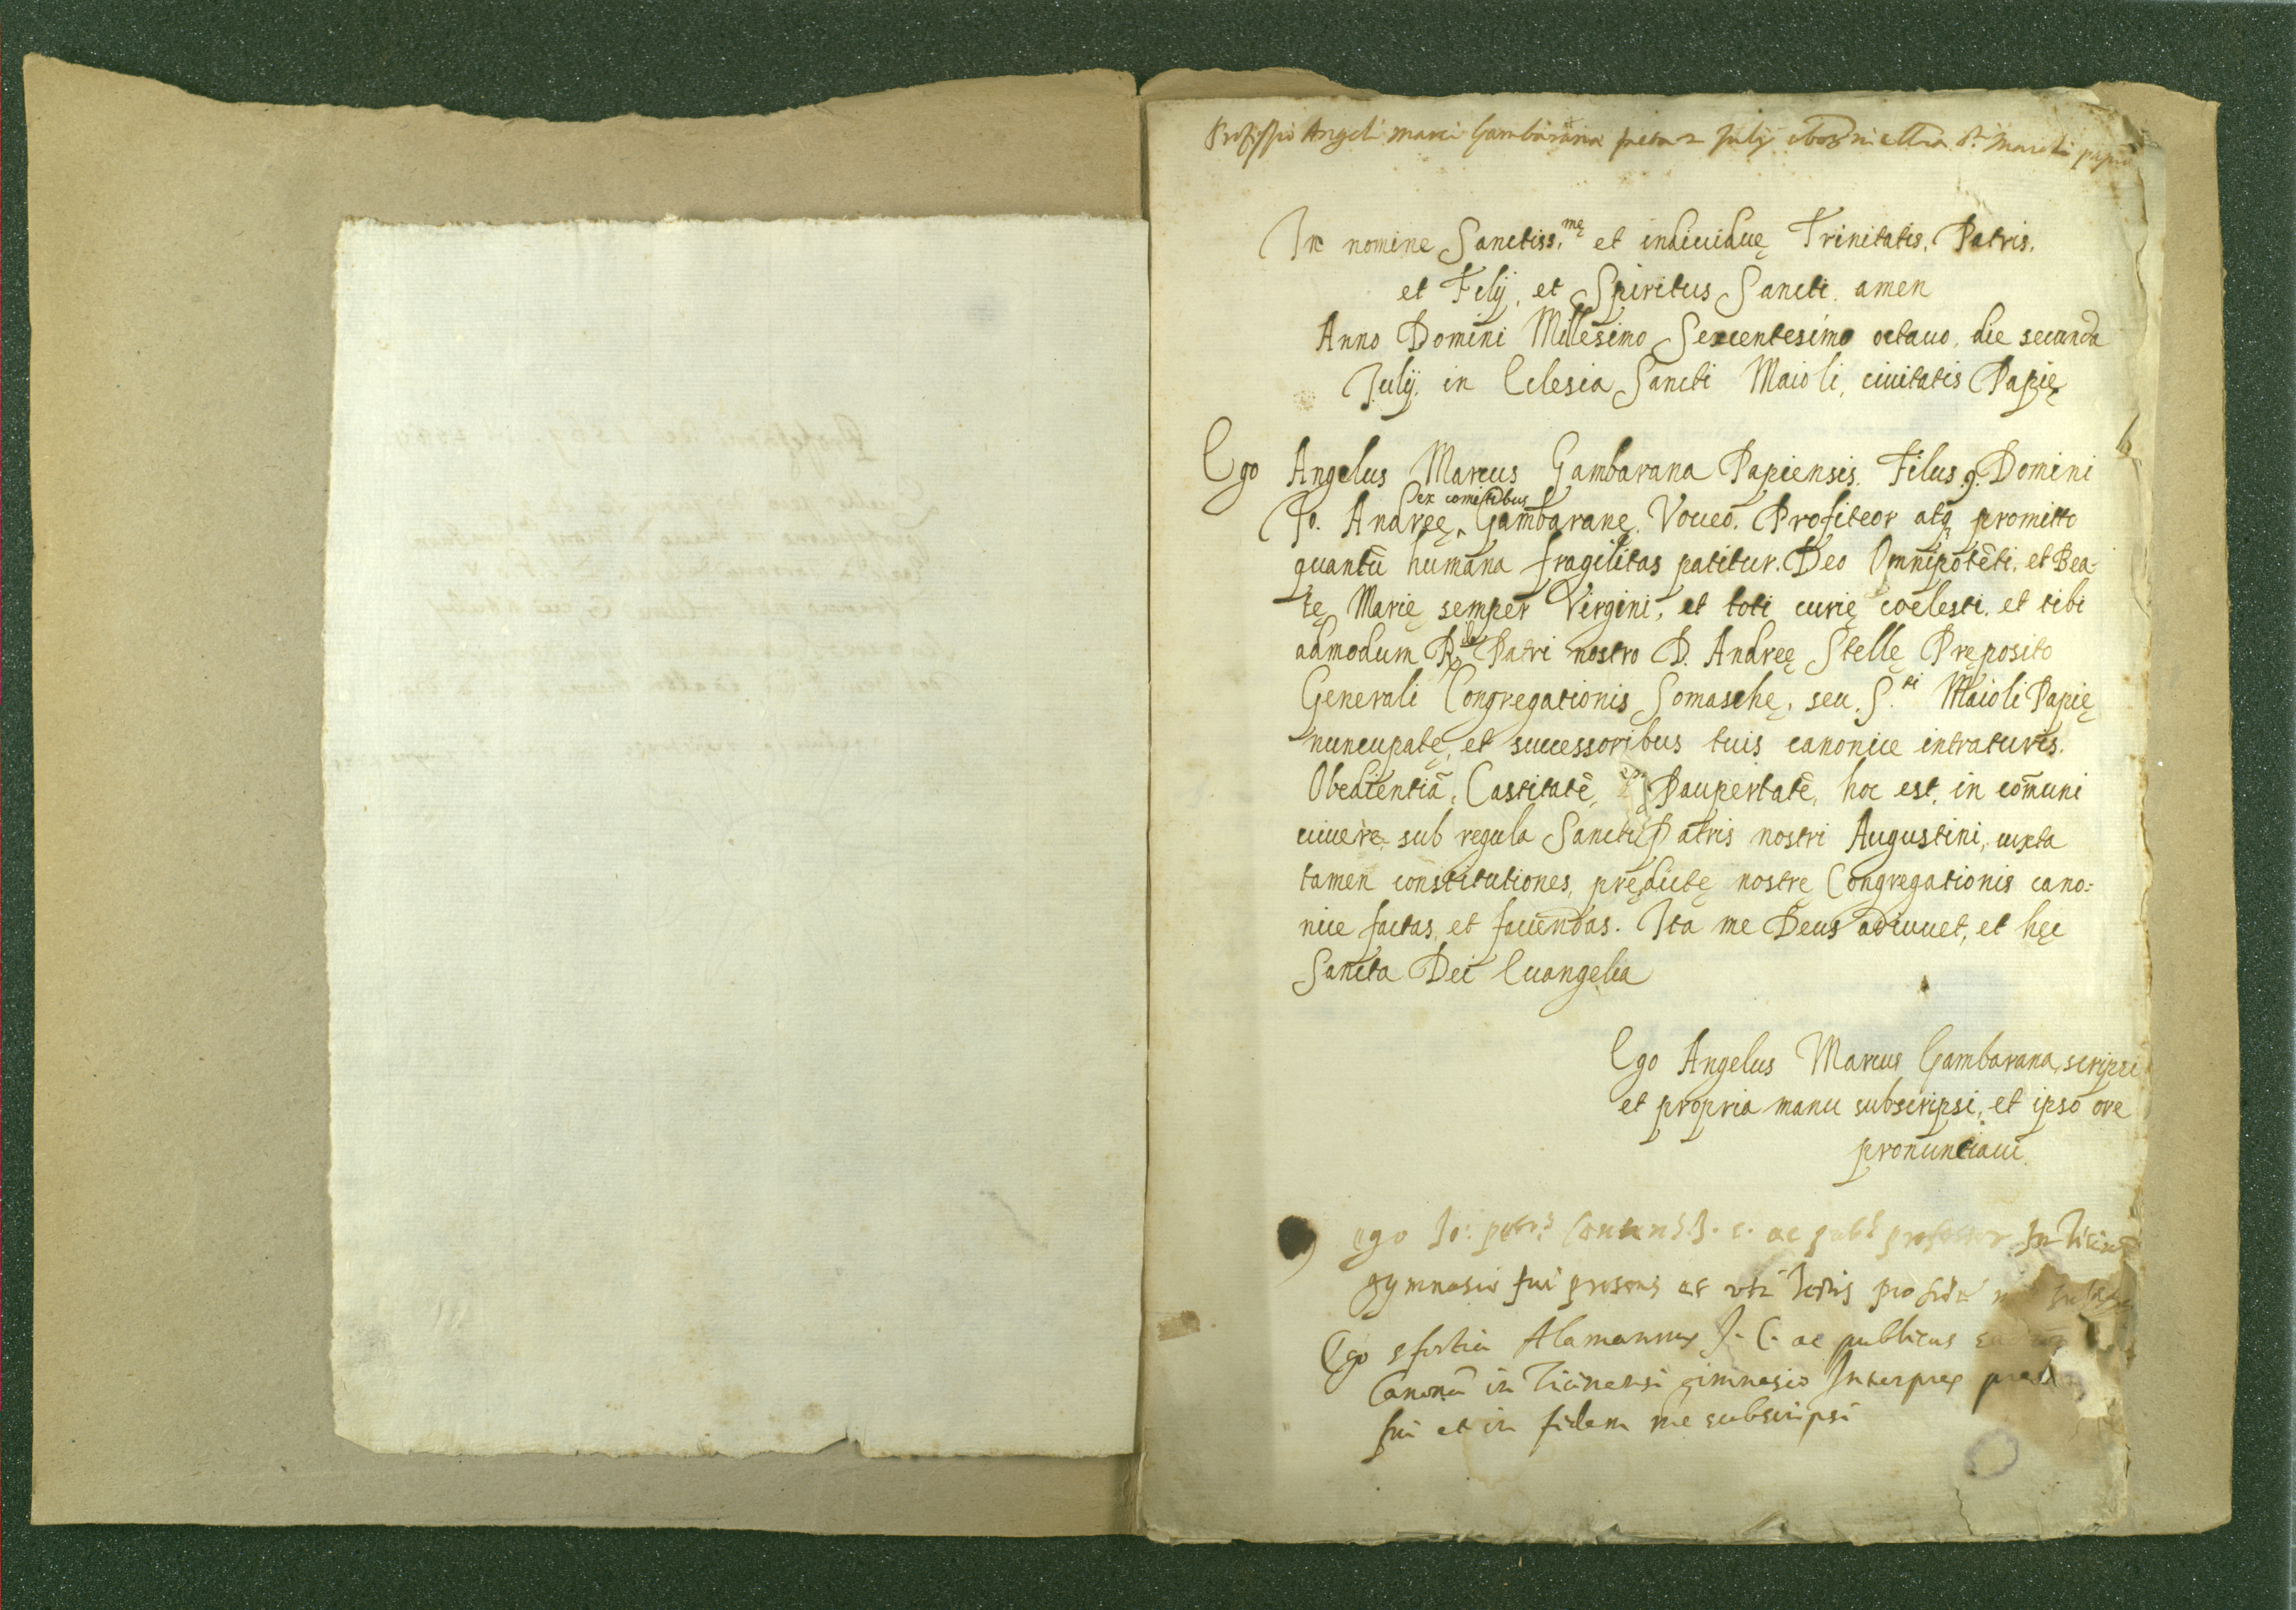 Professio Angeli Marci Gambarana facta 2 Julij 1608 in S.ti Maioli papię
In nomine Sanctiss.mę et indiuiduę Trinitatis, Patris,
et Filij, et Spiritus Sancti. amen
Anno Domini Millesimo Sexcentesimo octauo, die secunda
Julij, in Eclesia Sancti Maioli, ciuitatis Papię
Ego Angelus Marcus Gambarana Papiensis. Filus q. Domini
ex comitibus
Jo. Andreę Gambaranę. Voueo. Profiteor atq promitto
quantū humana fragilitas patitur. Deo Omnipotēti. et Bea-
tę Marię semper Virgini, et toti curię coelesti. et tibi
admodum R.do Patri nostro D. Andreę Stellę Pręposito
Generali Congregationis Somaschę, seu S.ti Maioli Papię
nuncupatę, et successoribus tuis canonice intraturis.
Obedientiā, Castitatē, Paupertatē, hoc est, in cōmuni
uiuere, sub regula Sancti Patris nostri Augustini, iuxta
tamen constitutiones, prędictę nostrę Congregationis cano-
nice factas, et faciendas. Ita me Deus adiuuet, et hęc
Sancta Dei Euangelia
Ego Angelus Marcus Gambarana, scripsi
et propria manu subscripsi, et ipso ore
pronunciaui
ego Jo: petrus J. c. ac publ professor In Ticinē
gymnasio fui presens et uti testis pro fide
Ego sfortia Alamannus J. C. ac publicus
Canonū in Ticinensi gimnasio Interpres
fui et in fidem me subscripsi